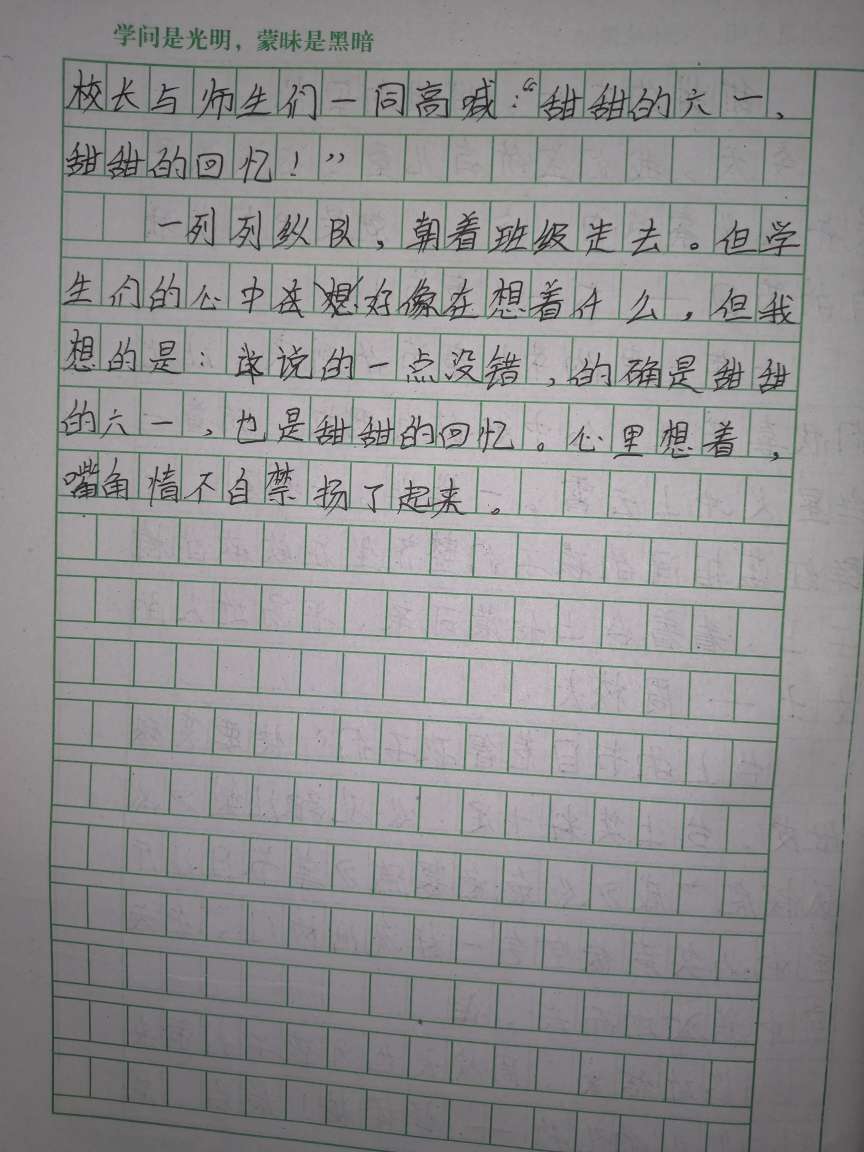 学问是光明，蒙昧是黑暗
校长与师生们一同高喊：“甜甜的六一、
甜甜的回忆！”
一列列纵队，朝着班级走去。但学
生们的心中好像在想着什么，但我
想的是：说的一点没错，的确是甜甜
的六一，也是甜甜的回忆。心里想着，
嘴角情不自禁扬了起来。